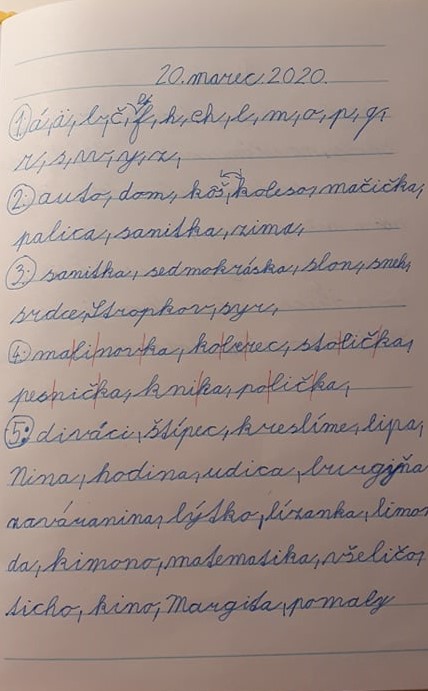 20. marec. 2020.
1. á, ä, b, č, d, f, h, ch, l, m, o, p, q,
r, s, w, y, z,
2. auto, dom, kôš, koleso, mačička,
palica, sanitka, zima,
3. sanitka, sedmokráska, slon, sneh,
srdce, Stropkov, syr,
4. malinovka, koberec, stolička,
pesnička, knika, polička,
5. diváci, štípec, kreslíme, lipa,
Nina, hodina, udica, burgyňa
zaváranina, lýtko, lízanka, limon
da, kimono, matematika, všeličo,
ticho, kino, Margita, pomaly